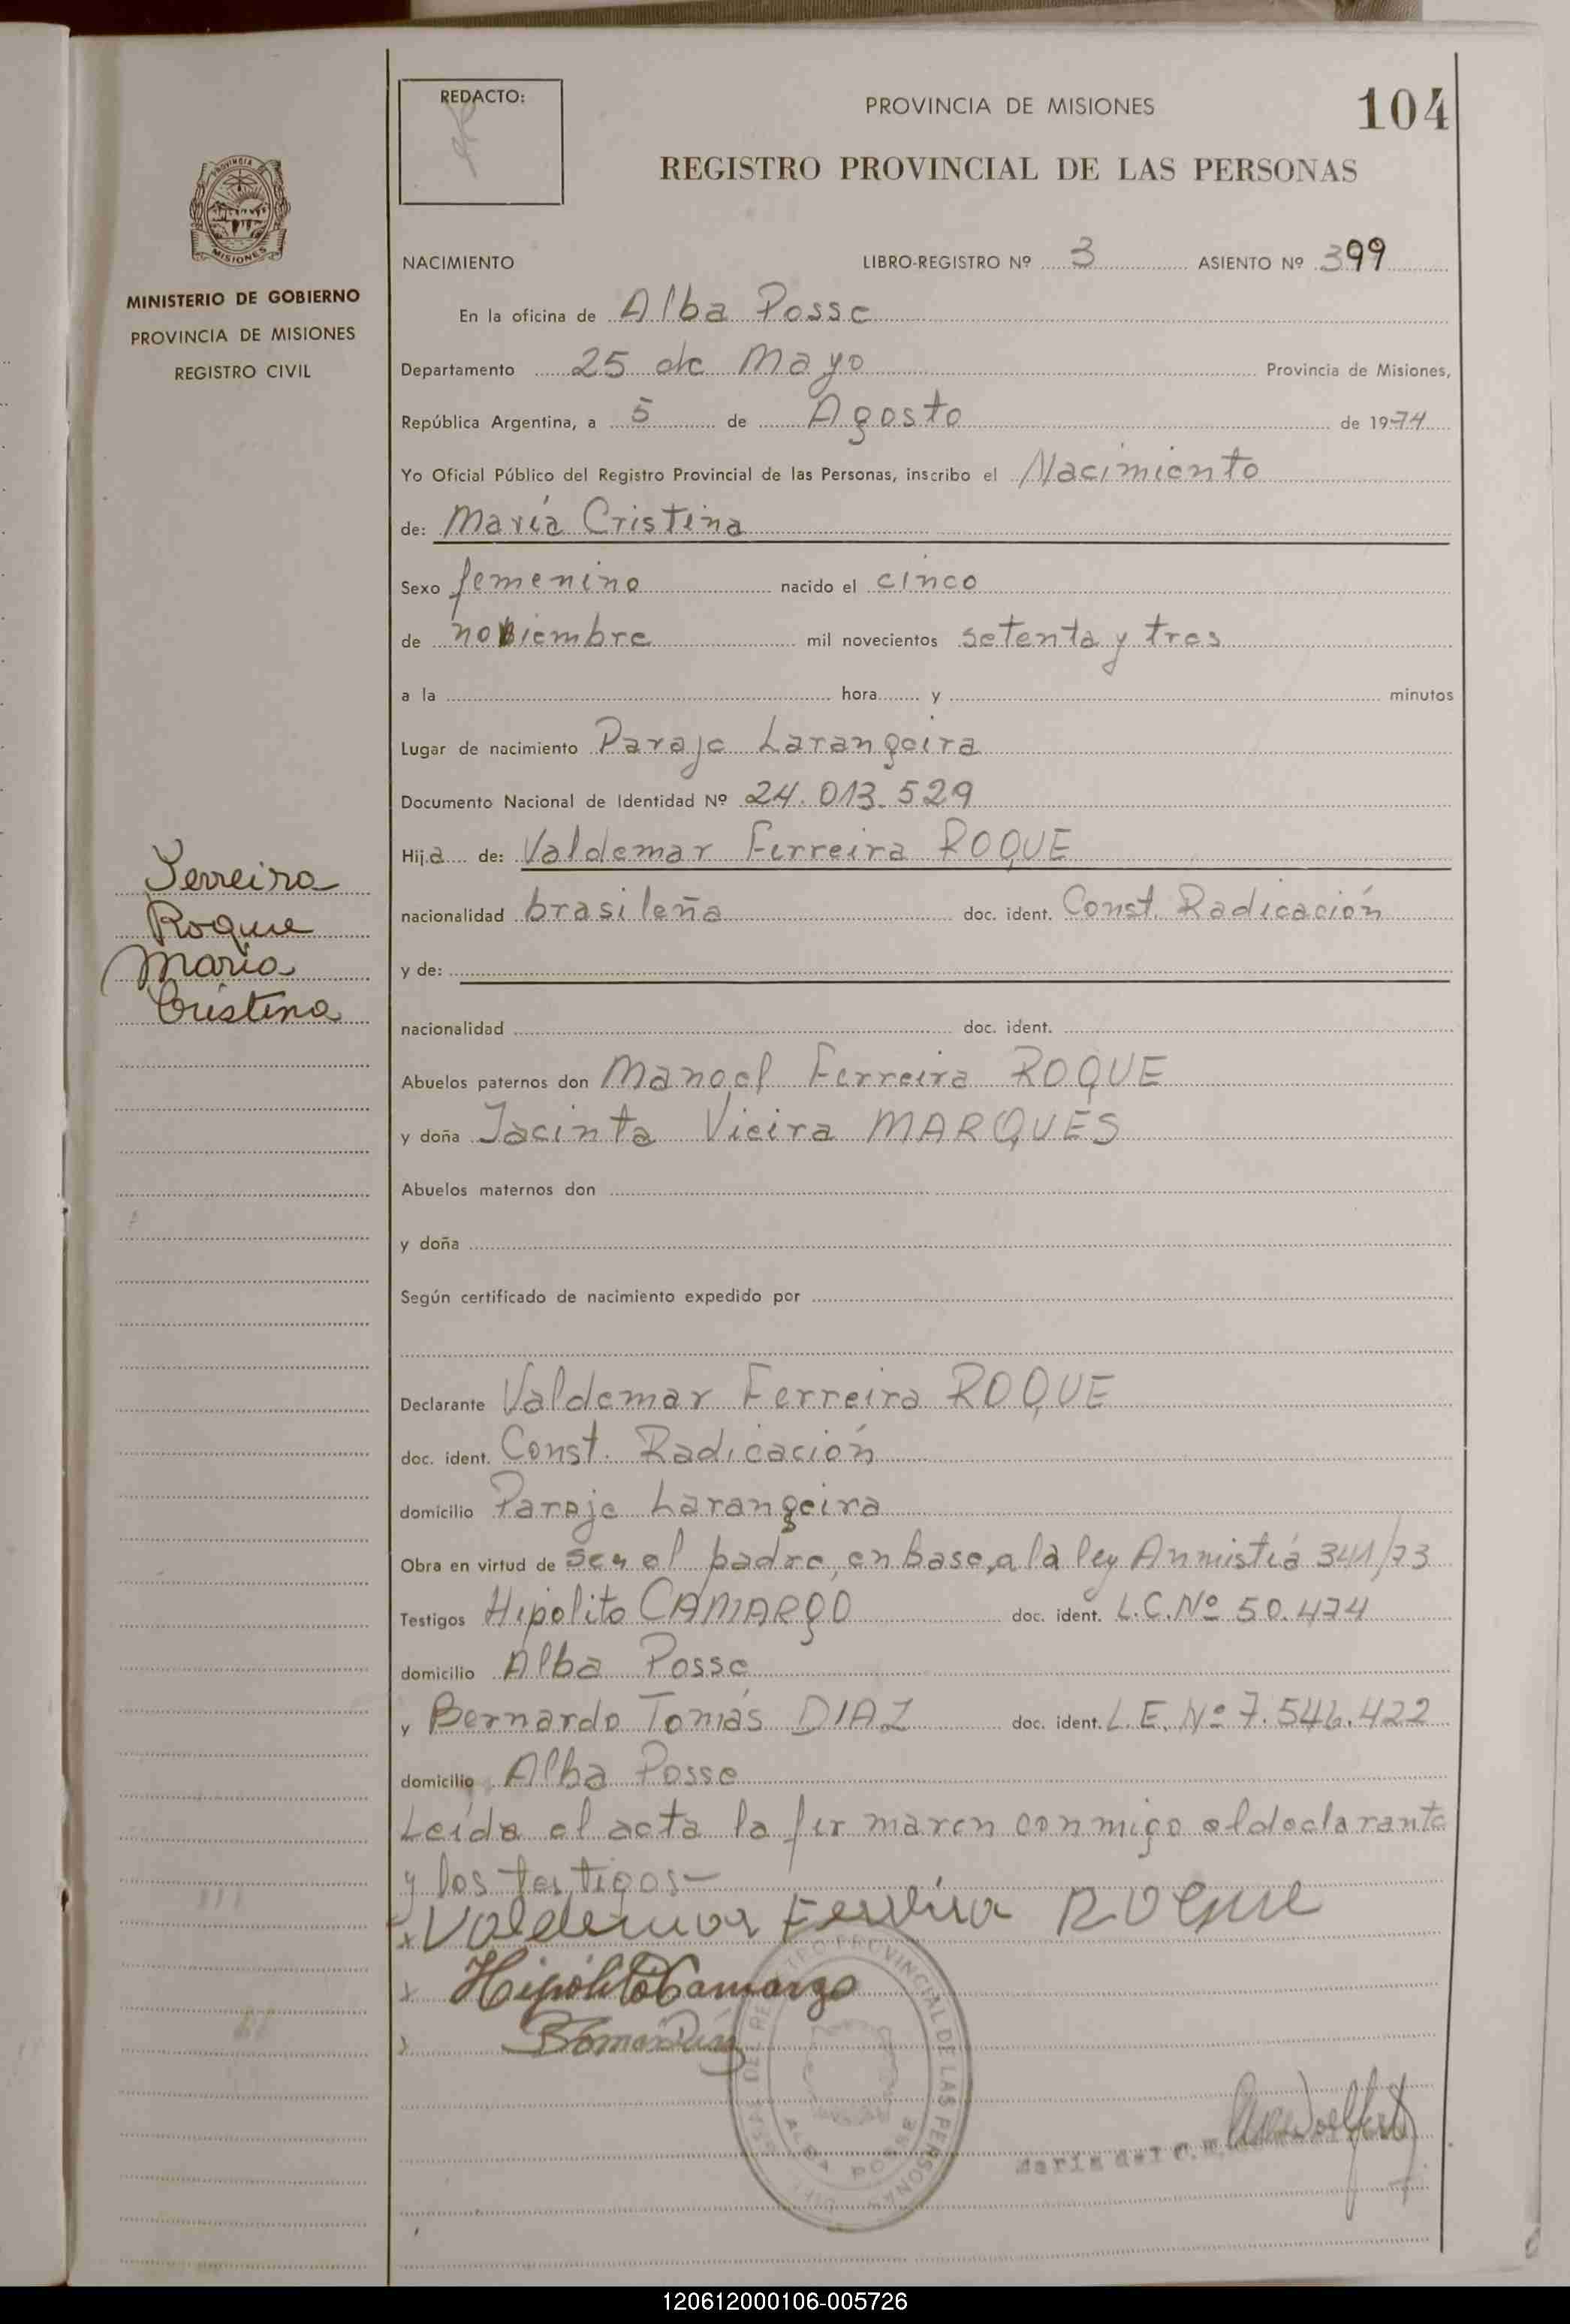 REDACTO:
PROVINCIA DE MISIONES
104
REGISTRO PROVINCIAL DE LAS PERSONAS
PROVINCIA
MISIONES
MINISTERIO DE GOBIERNO
PROVINCIA DE MISIONES
REGISTRO CIVIL
NACIMIENTO LIBRO-REGISTRO Nº 3 ASIENTO Nº 399
En la oficina de Alba Posse
Departamento 25 de Mayo Provincia de Misiones,
República Argentina, a 5 de Agosto de 1974
Yo Oficial Público del Registro Provincial de las Personas, inscribo el Nacimiento
de: María Cristina
Sexo femenino nacido el cinco
de noviembre mil novecientos setenta y tres
a la hora y minutos
Lugar de nacimiento Paraje Larangeira
Documento Nacional de Identidad Nº 24.013.529
Hija de: Valdemar Ferreira ROQUE
nacionalidad brasileña doc. ident. Const. Radicación
y de:
nacionalidad doc. ident.
Abuelos paternos don Manoel Ferreira ROQUE
y doña Jacinta Vieira MARQUES
Abuelos maternos don
y doña
Según certificado de nacimiento expedido por
Declarante Valdemar Ferreira ROQUE
doc. ident. Const. Radicación
domicilio Paraje Larangeira
Obra en virtud de ser el padre, en base a la ley Anmistía 341/73
Testigos Hipólito CAMARGO doc. ident. L.C. Nº 50.474
domicilio Alba Posse
y Bernardo Tomás DIAZ doc. ident. L.E. Nº 7.546.422
domicilio Alba Posse
Leída el acta la firmaren conmigo el declarante
y los testigos-
x Valdemar Ferreira Roque
x Hipólito Camargo
x
Ferreira
Roque
Maria
Cristina
REGISTRO PROVINCIAL DE LAS PERSONAS
ALBA POSSE
María del C.
120612000106-005726